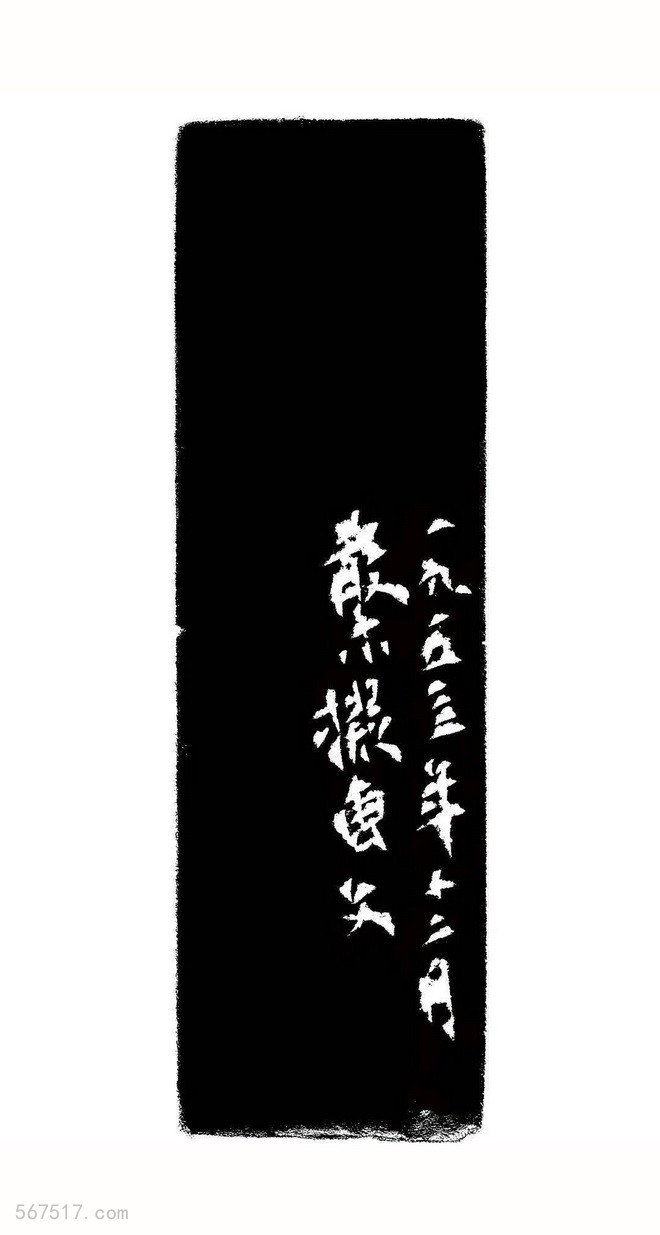 一九五三年十二月
散木
567517.com